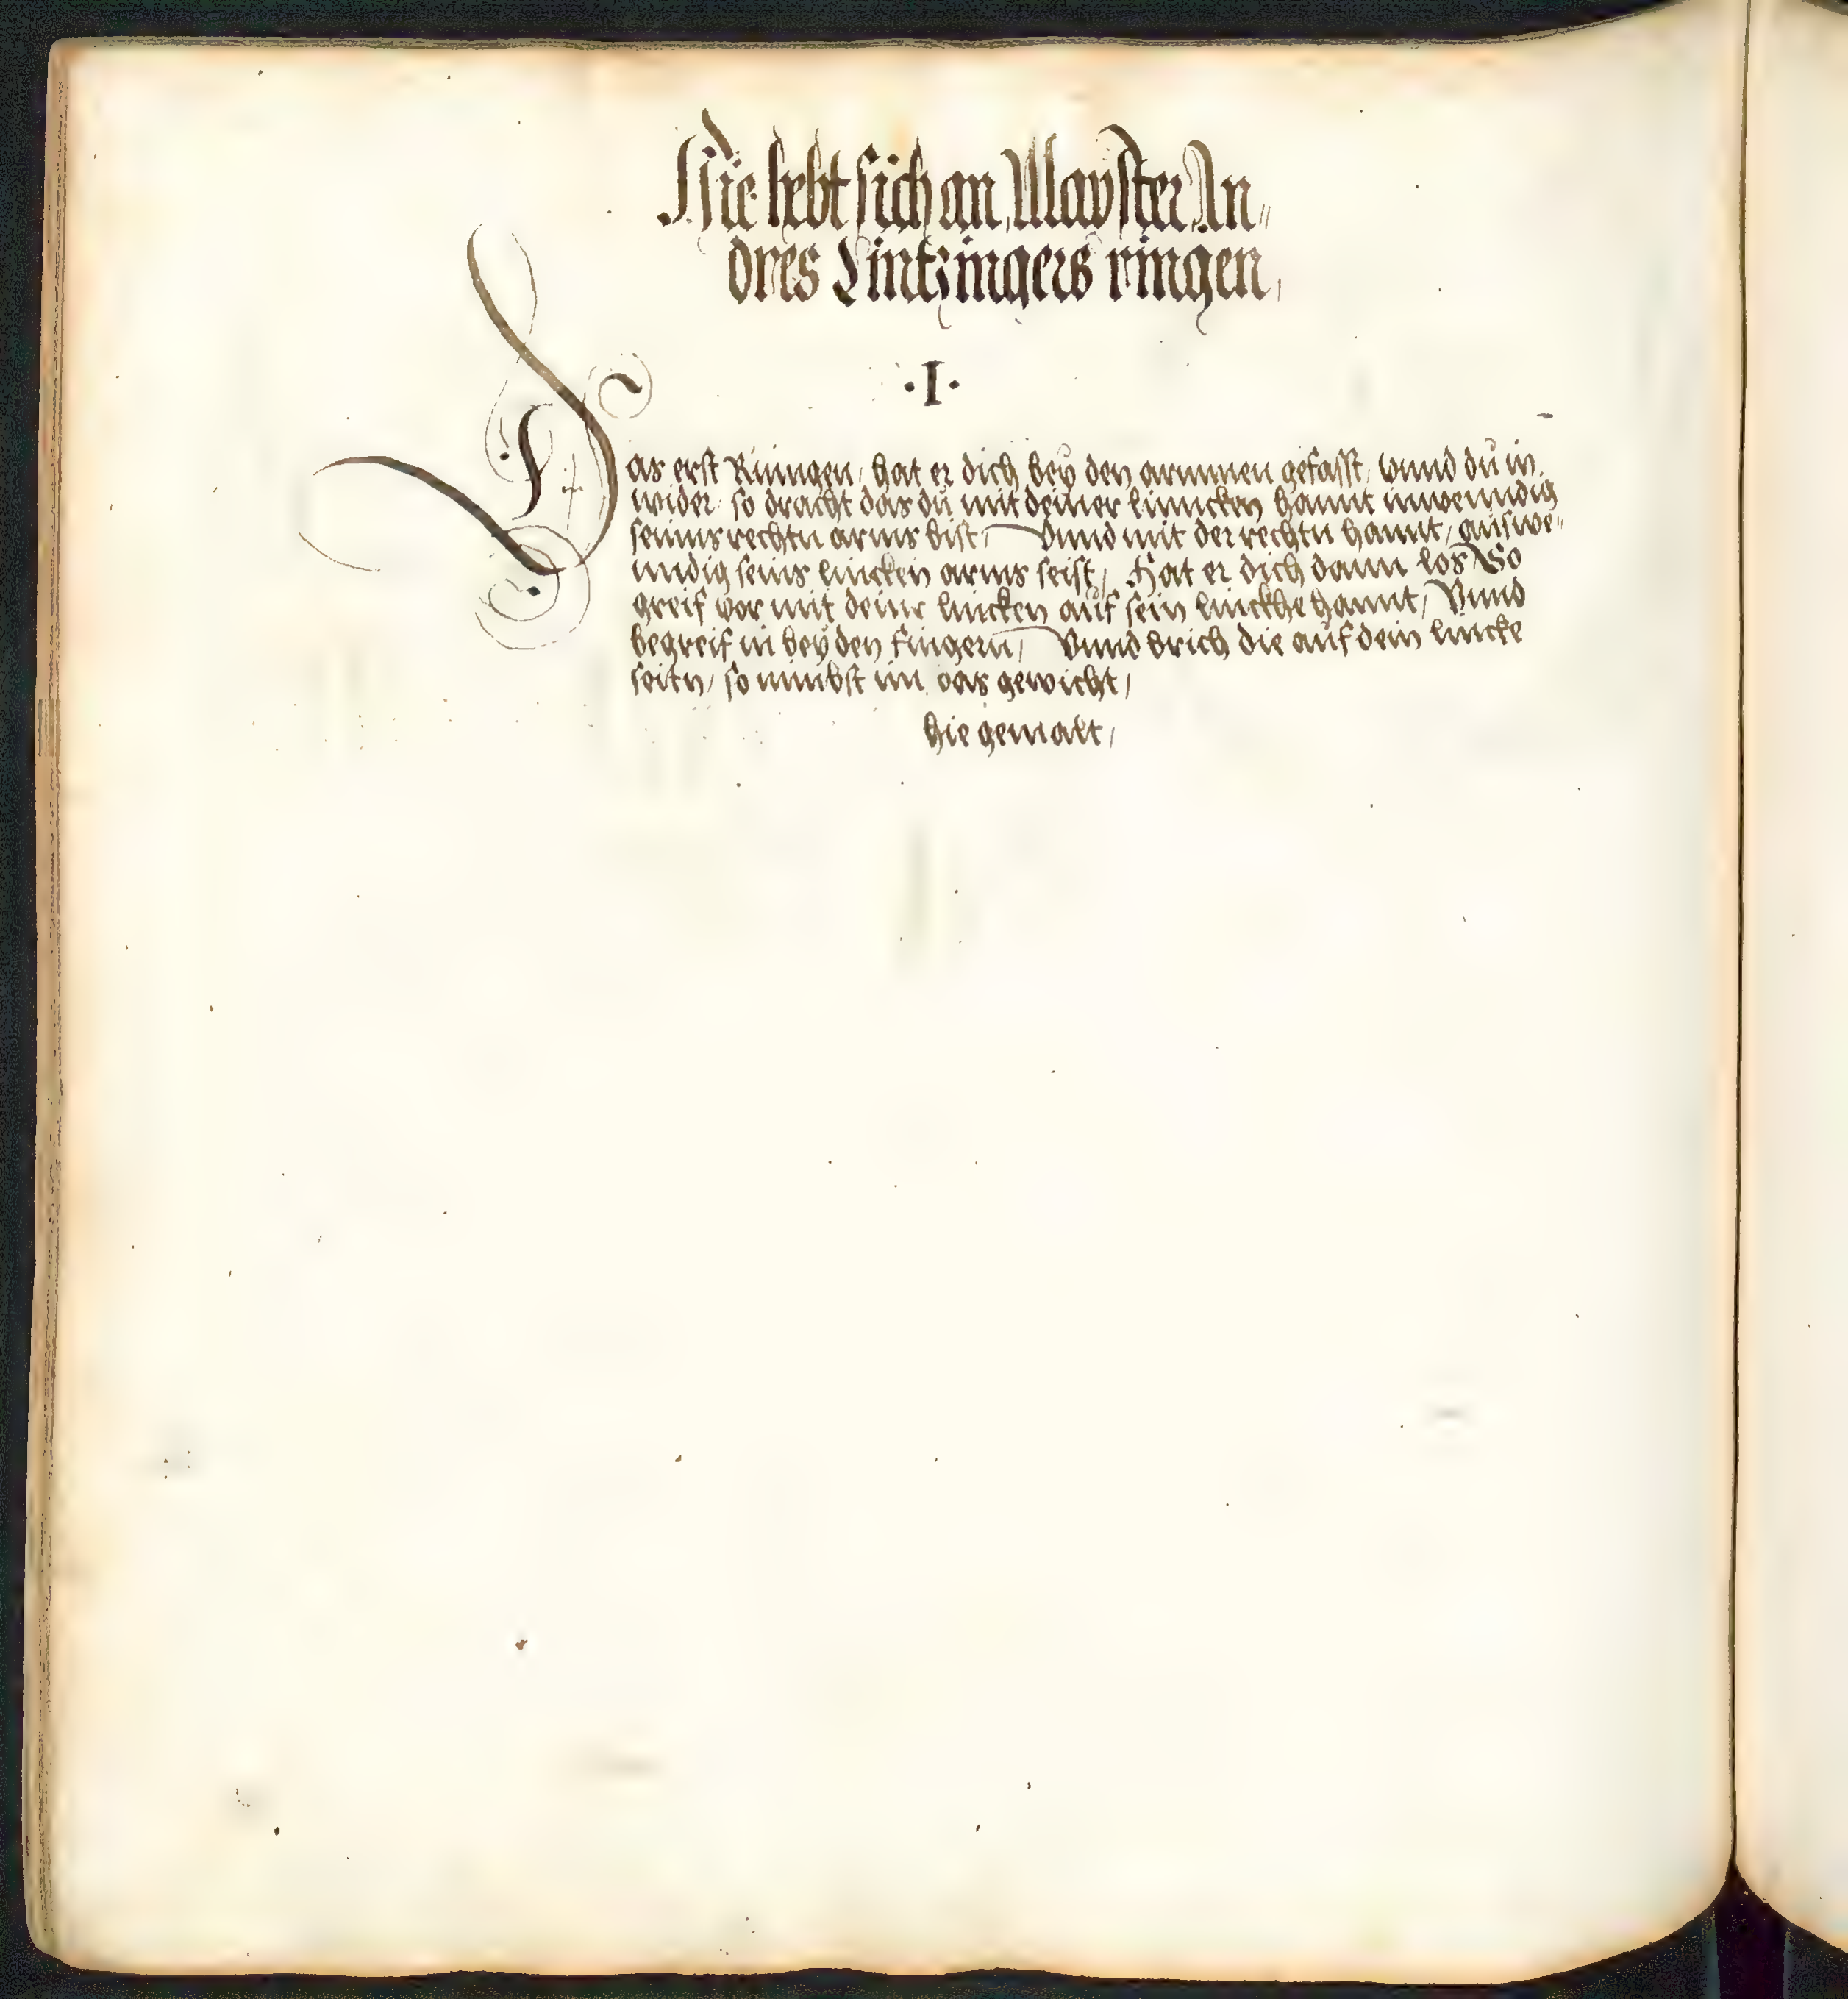 Hie hebt sich an Mayster An„
dres Lintzingers ringen,
·I·
Das erst Rinngen, hat er dich bey den armmen gefasst, vnnd dů in
wider, so dracht das dů mit deiner linncken hannt inwenndig
seinns rechtn arms bist, Vnnd mit der rechtn hannt, auswe„
nndig seins lincken arms seist, Hat er dich dann los So
greif vor mit deinr lincken aůf sein linckhe hannt, Vnnd
begreif in bey den fingern, Vnnd brich die aůf dein lincke
seitn, so nimbst im das gewicht,
hie gemalt,